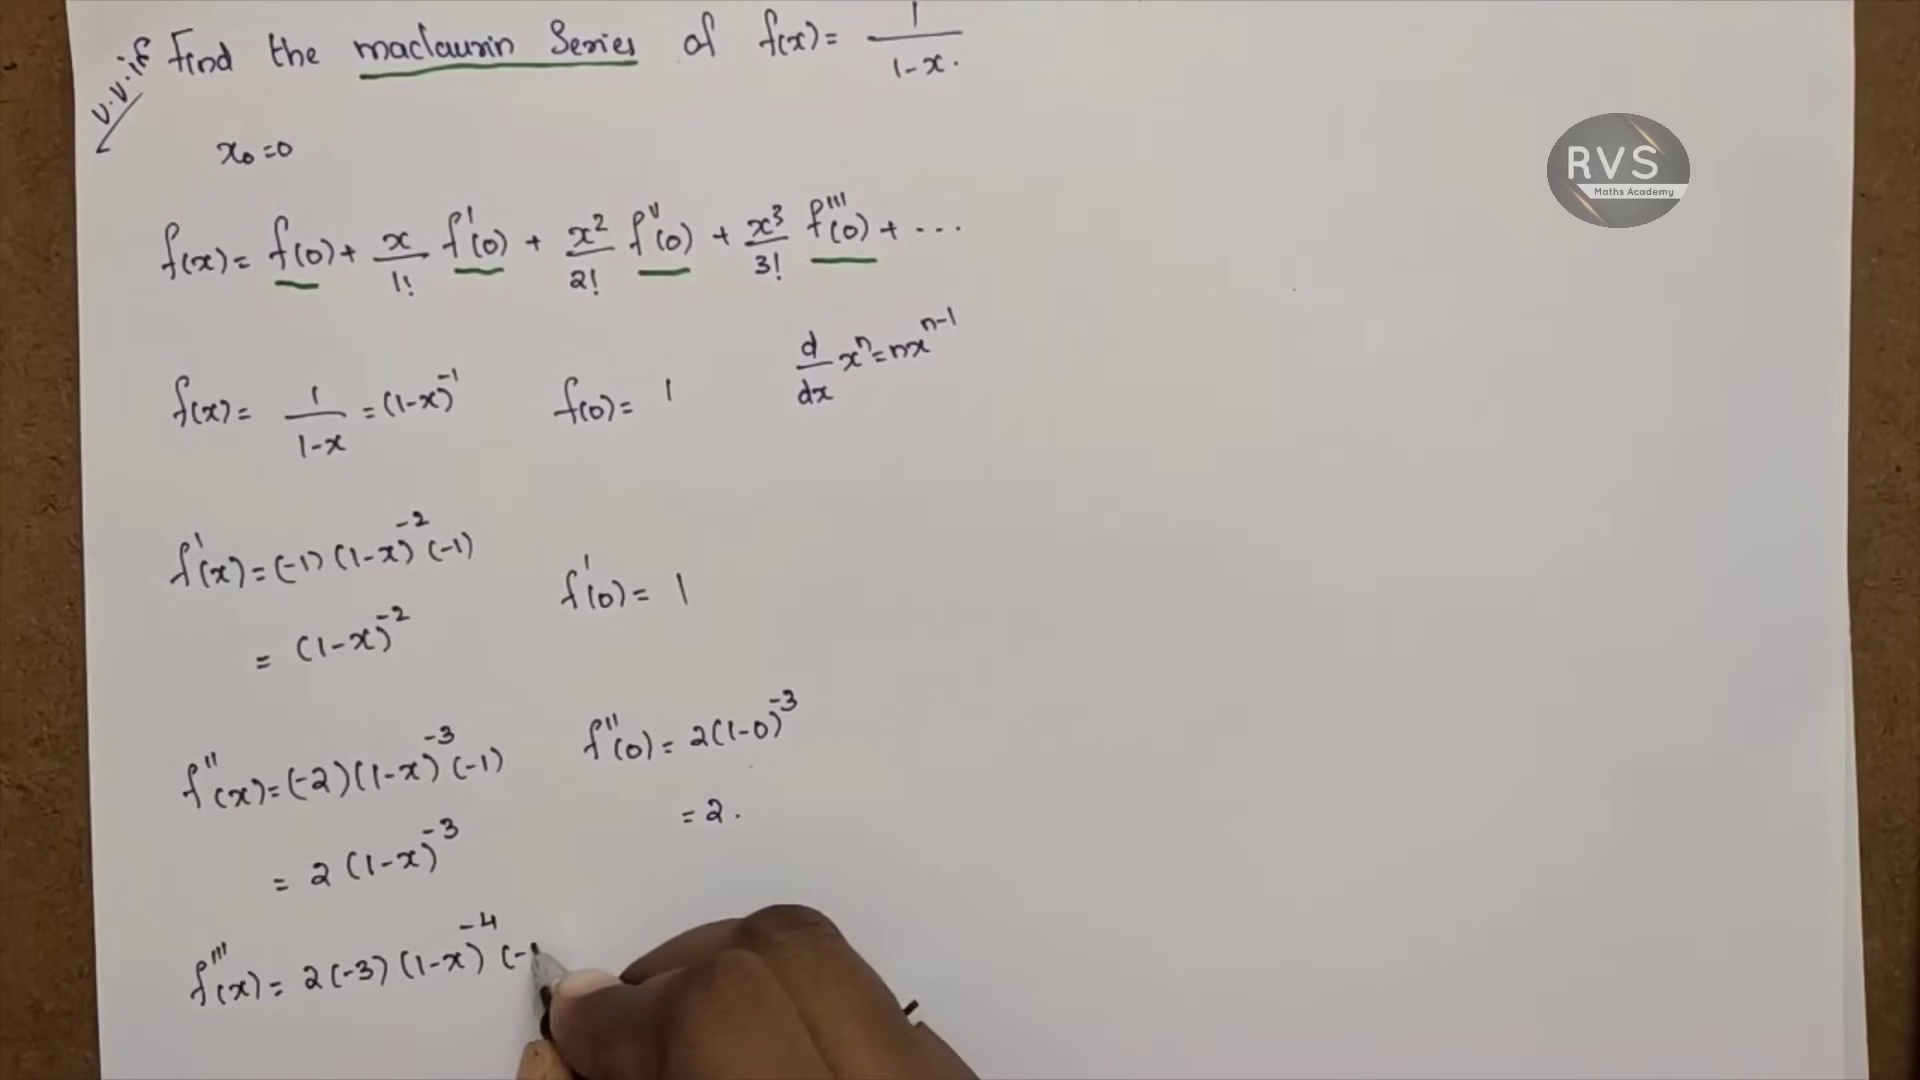 v.v.if Find the maclaurin Series of f(x) = 1/(1-x).
RVS
Maths Academy
x₀=0
f(x) = f(0) + x/1! f'(0) + x²/2! f''(0) + x³/3! f'''(0) + ...
f(x) = 1/(1-x) = (1-x)⁻¹ f(0) = 1 d/dx xⁿ = nxⁿ⁻¹
f'(x) = (-1)(1-x)⁻²(-1) f'(0) = 1
= (1-x)⁻²
f''(x) = (-2)(1-x)⁻³(-1) f''(0) = 2(1-0)⁻³
= 2(1-x)⁻³ = 2.
f'''(x) = 2(-3)(1-x)⁻⁴(-